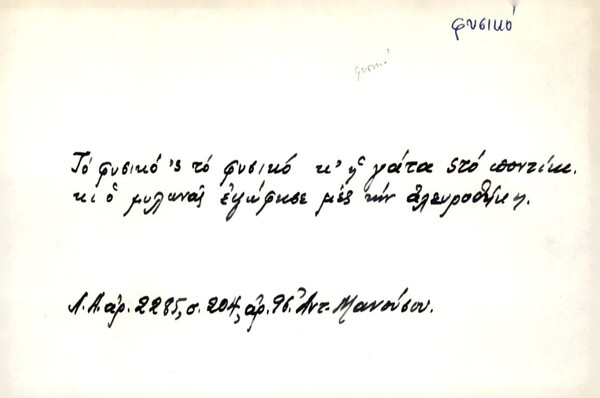 φυσικό
φυσικό
Τό φυσικό 'ς τό φυσικό κ' ἡ γάτα στό ποντίκι.
κι ὁ μυλωνᾶς ἐψόφησε μές τήν ἀλευροθήκη.
Λ.Α. ἀρ. 2285, σ. 204, ἀρ. 96. Ἀντ. Μανούσου.